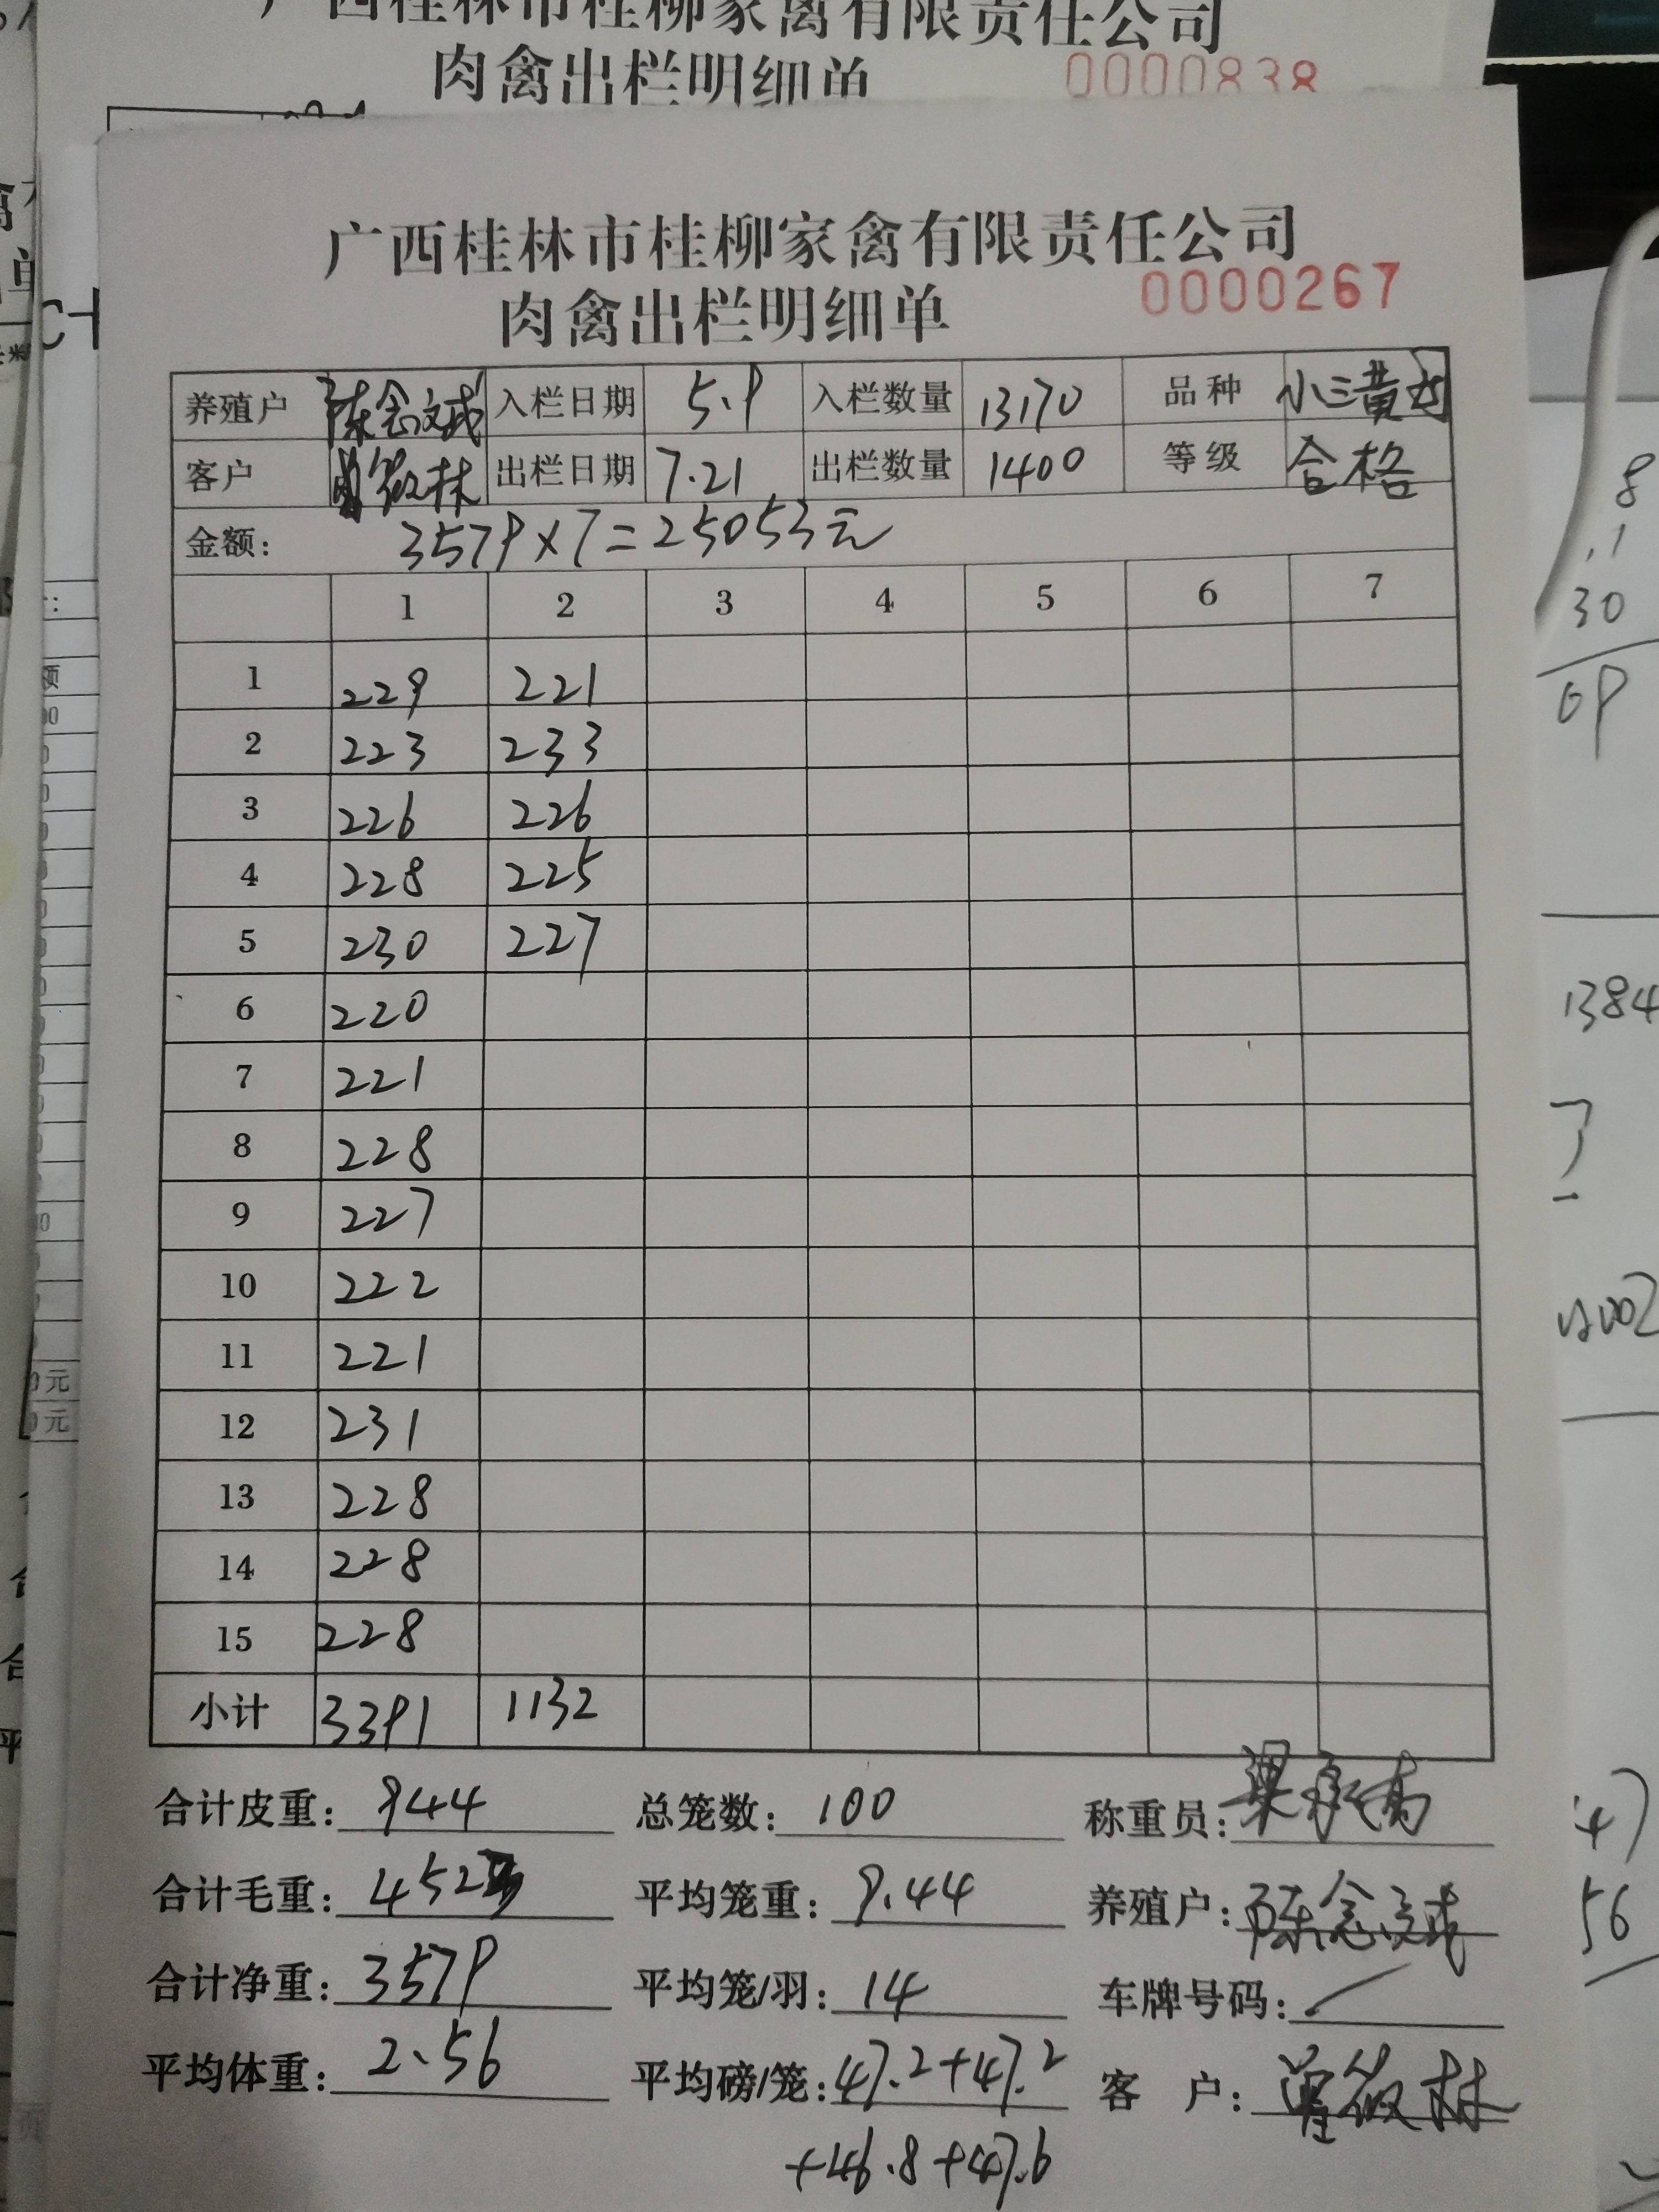 广西桂林市桂柳家禽有限责任公司
肉禽出栏明细单 0000838
广西桂林市桂柳家禽有限责任公司
肉禽出栏明细单 0000267
养殖户 陈念斌 入栏日期 5.9 入栏数量 13170 品种 小三黄
客户 林 出栏日期 7.21 出栏数量 1400 等级 合格
金额: 3579×7=25053元
1 2 3 4 5 6 7
1 229 221
2 223 233
3 226 226
4 228 225
5 230 227
6 220
7 221
8 228
9 227
10 222
11 221
12 231
13 228
14 228
15 228
小计 3391 1132
合计皮重: 944 总笼数: 100 称重员: 梁
合计毛重: 452 平均笼重: 9.44 养殖户: 陈念斌
合计净重: 3579 平均笼/羽: 14 车牌号码: /
平均体重: 2.56 平均磅/笼: 47.2+47.2 客 户: 林
+46.8+47.6
8
.1
30
69
1384
47
56
0元
0元